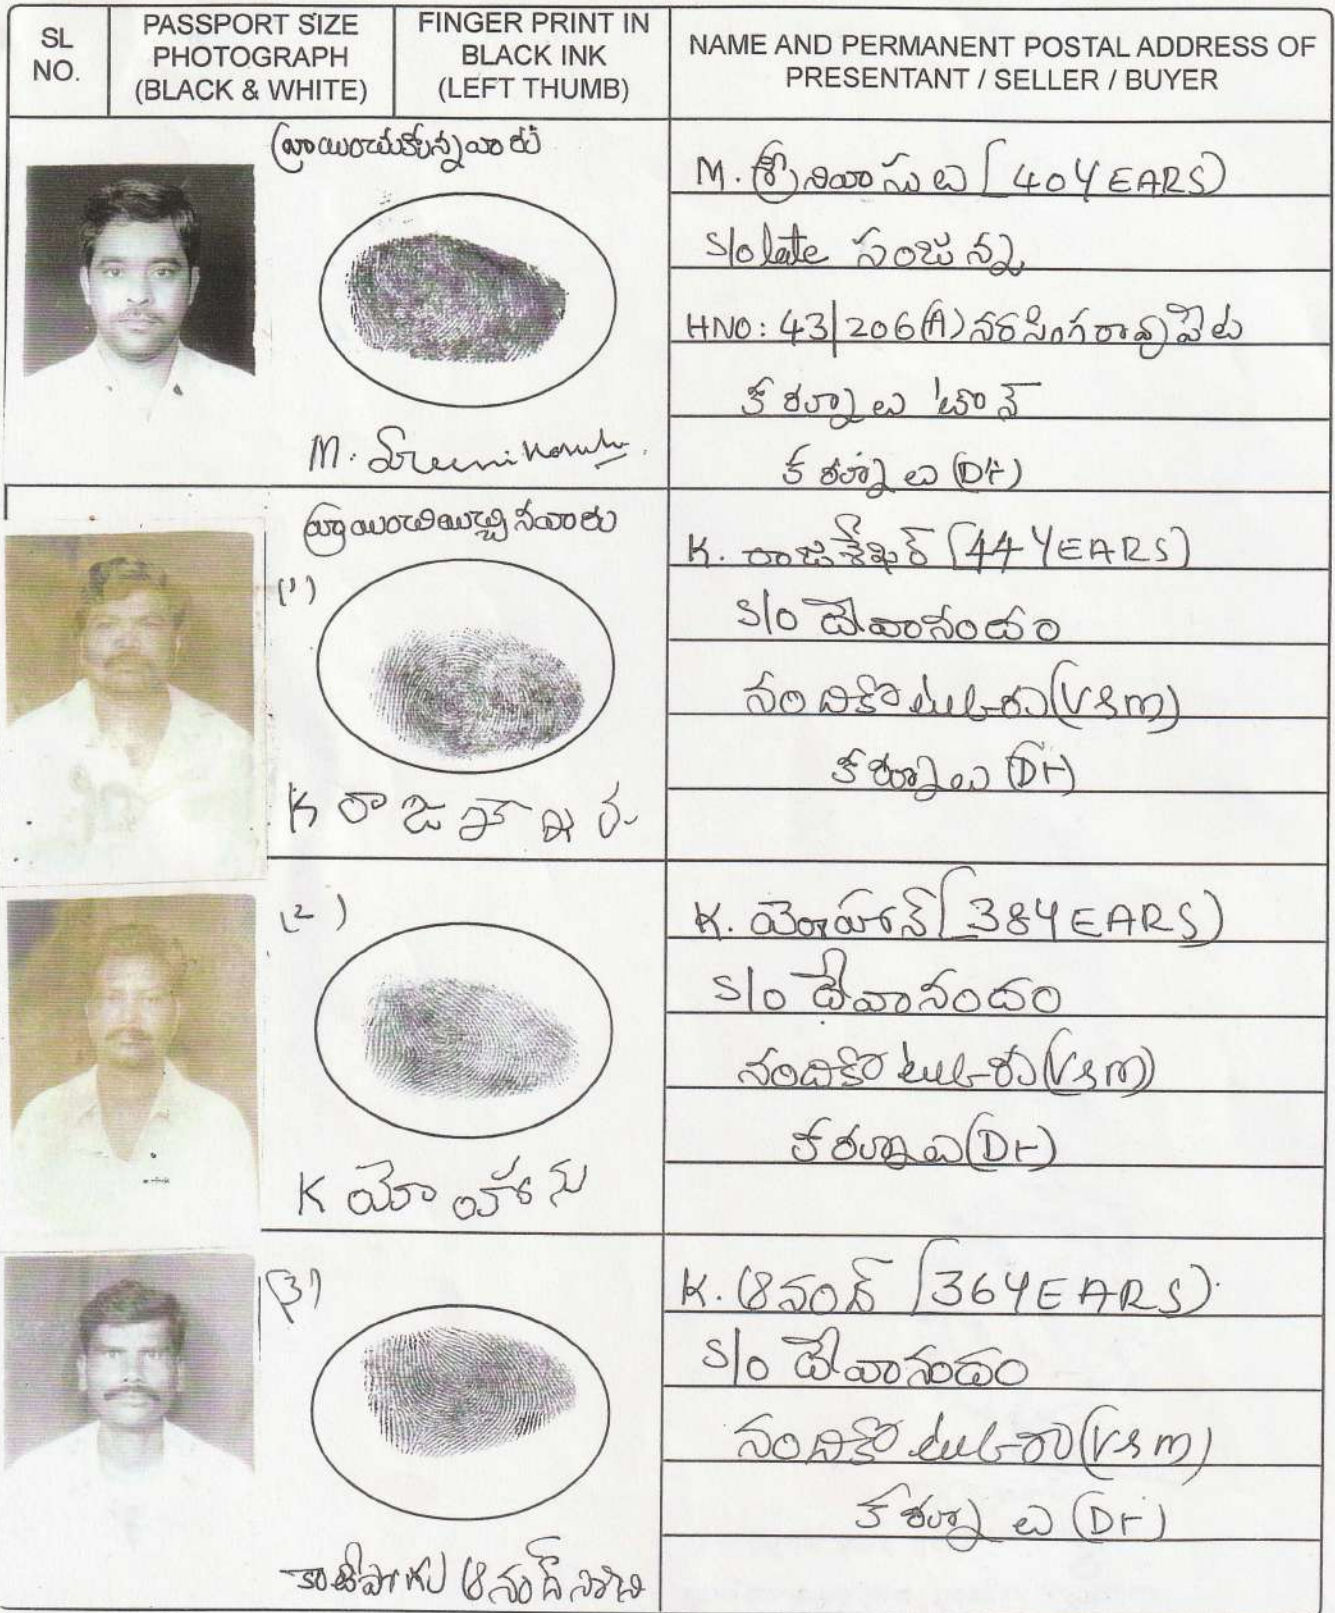 SL NO.
PASSPORT SIZE PHOTOGRAPH (BLACK & WHITE)
FINGER PRINT IN BLACK INK (LEFT THUMB)
NAME AND PERMANENT POSTAL ADDRESS OF PRESENTANT / SELLER / BUYER
వ్రాయించుకొన్నవారు
M. శ్రీనివాసులు (40 YEARS)
S/o late సంజన్న
HNO: 43/206(A) నరసింగరావుపేట
కర్నూలు టౌన్
కర్నూలు (Dt)
M. Sreenivasulu
వ్రాయించియిచ్చినవారు
(1)
K. రాజశేఖర్ (44 YEARS)
S/o దేవానందం
నందికొట్కూరు (V&m)
కర్నూలు (Dt)
K రాజశేఖర్
(2)
K. యోహాన్ (38 YEARS)
S/o దేవానందం
నందికొట్కూరు (V&m)
కర్నూలు (Dt)
K యోహాను
(3)
K. ఆనంద్ (36 YEARS)
S/o దేవానందం
నందికొట్కూరు (V&m)
కర్నూలు (Dt)
ఆనంద్